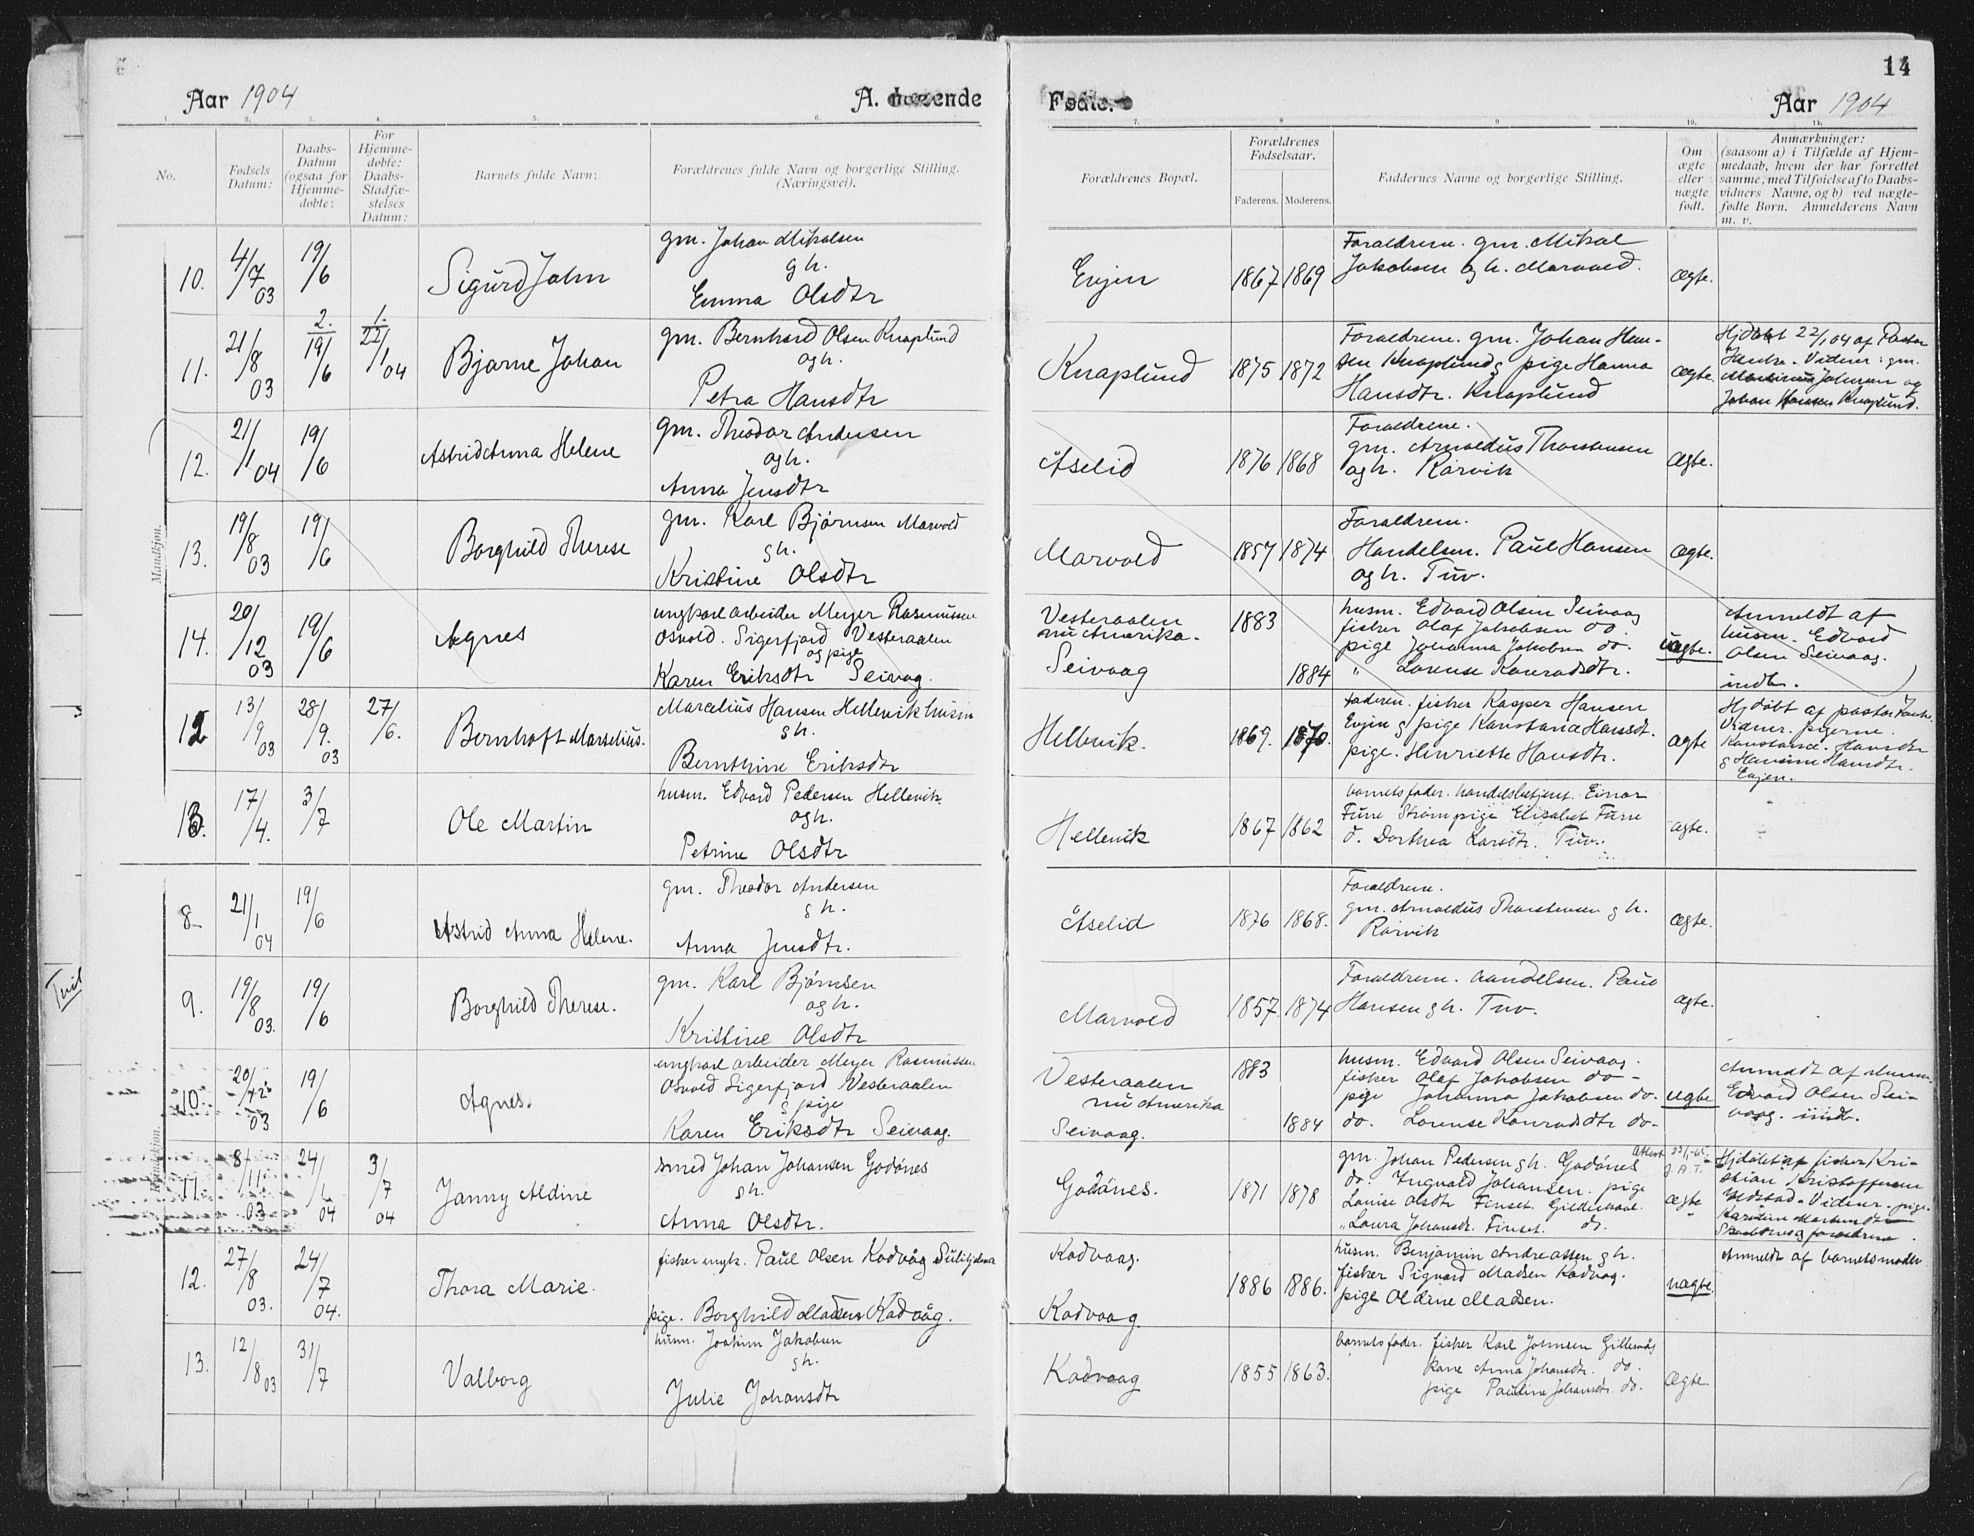 Aar 1904
A. Levende
No.
Fødsels Datum:
Daabs-Datum (ogsaa for Hjemme-døbte:
For Hjemme-døbte: Daabs-Stadfæ-stelses Datum:
Barnets fulde Navn:
Forældrenes fulde Navn og borgerlige Stilling. (Næringsvei).
Mandkjøn.
10. 4/7 03 19/6 Sigurd John
gm. Johan Mikalsen
g h.
Emma Olsdtr
11. 21/8 03 2. 19/6 1. 22/1 04 Bjarne Johan
gm. Bernhard Olsen Knaplund
og h.
Petra Hansdtr
12. 21/1 04 19/6 Astrid Anna Helene
gm. Theodor Andersen
og h.
Anna Jensdtr
13. 19/8 03 19/6 Borghild Therese
gm. Karl Bjørnsen Marvold
g h.
Kristine Olsdtr
14. 20/12 03 19/6 Agnes
ungkarl arbeider Meyer Rasmussen
Osvold. Sigerfjord Vesteraalen
og pige
Karen Eriksdtr Seivaag.
12 13/9 03 28/9. 03 27/6. Bernhoft Marselius.
Marcelius Hansen Hellevik husm
g h.
Bernthine Eriksdtr
13. 17/4. 3/7 Ole Martin
husm. Edvard Pedersen Hellevik.
og h.
Petrine Olsdtr
8. 21/1 04 19/6 Astrid Anna Helene.
gm. Theodor Andersen
g h.
Anna Jensdtr.
Tuv
9. 19/8 03. 19/6 Borghild Therese.
gm. Karl Bjørnsen
og h.
Kristine Olsdtr
10. 20/12 03 19/6 Agnes.
ungkarl arbeider Meyer Rasmussen
Osvold Sigerfjord Vesteraalen
g pige
Karen Eriksdtr Seivaag.
11. 8/11 03 24/1 04 3/7 04 Janny Aldine
smed Johan Johansen Godønes
g h.
Anna Olsdtr.
12. 27/8 03. 24/7 04. Thora Marie.
fisker ungk. Paul Olsen Kodvåg Sulitjelma
pige. Borghild Madsen Kodvåg.
13. 12/8 03 31/7 Valborg
husm. Joakim Jakobsen
g h.
Julie Johansdtr
14
Fødte.
Aar 1904
Forældrenes Bopæl.
Forældrenes Fødselsaar.
Faderens. Moderens.
Faddernes Navne og borgerlige Stilling.
Om ægte eller uægte født.
Anmærkninger:
(saasom a) i Tilfælde af Hjem-
medaab, hvem der har forrettet
samme, med Tilføielse af to Daabs-
vidners Navne, og b) ved uægte-
fødte Børn. Anmelderens Navn
m. v.
Evjen 1867 1869
Forældrene. gm. Mikal
Jakobsen og h. Marvold.
ægte.
Knaplund 1875 1872
Forældrene. gm. Johan Han-
sen Knaplund g pige Hanna
Hansdtr. Knaplund
ægte.
Hjdøbt 22/1 04 af Pastor
Vidner: gm.
Johnsen og
Johan Hansen Knaplund.
Åselid 1876 1868
Forældrene.
gm. Arnoldus Thorstensen
og h. Rørvik
ægte.
Marvold 1857 1874
Forældrene.
Handelsm. Paul Hansen
og h. Tuv.
ægte.
Vesteraalen
nu Amerika.
Seivaag
1883
1884
husm. Edvard Olsen Seivaag
fisker Olaf Jakobsen do.
pige Johanna Jakobsen do.
" Lorense Konradsdtr.
uægte.
Anmeldt af
husm. Edvard
Olsen Seivaag.
indt.
Hellevik. 1869. 1870.
faderen. fisker Kasper Hansen
Evjen g pige Konstanse Hansdt.
pige. Henriette Hansdtr.
ægte
Hjdøbt af pastor
Vidner. pigerne.
Konstance. Hansdtr
g Hansine Hansdtr.
Evjen.
Hellevik 1867 1862
barnets fader. handelsbetjent. Einar
Furre Strøm pige Elisabet Furre
d. Dorthea Larsdtr. Tuv.
ægte.
Åselid 1876 1868.
Forældrene.
gm. Arnoldus Thorstensen g h.
Rørvik
ægte.
Marvold 1857. 1874
Forældrene. Handelsm. Paul
Hansen g h. Tuv.
ægte.
Vesteraalen
nu Amerika
Seivaag.
1883
1884
husm. Edvard Olsen Seivaag.
fisker Olaf Jakobsen do-
pige Johanna Jakobsen do.
do. Lorense Konradsdtr do-
uægte
Anmeldt af husm.
Edvard Olsen Sei-
vaag. indt.
Godønes. 1871 1878
gm. Johan Pedersen g h. Godønes
do. Ingvald Johansen. pige
Lovise Olsdtr Finset. Gildeskaal.
" Laura Johansdt. Finset. do.
Attest
ægte
Hjdøbt af fisker Kri-
stian Kristoffersen
Vidner. pige.
g forældrene.
Kodvaag.
Kodvaag.
1886 1886.
husm. Benjamin Andreassen g h.
fisker Sigvard Madsen Kodvag.
pige Oldine Madsen.
uægte.
Anmeldt af barnets moder
Kodvaag 1855 1863.
barnets fader. fisker Karl Johnsen Gillesvåg
kone Anna Johansdtr. do.
pige Pauline Johansdtr do.
ægte.